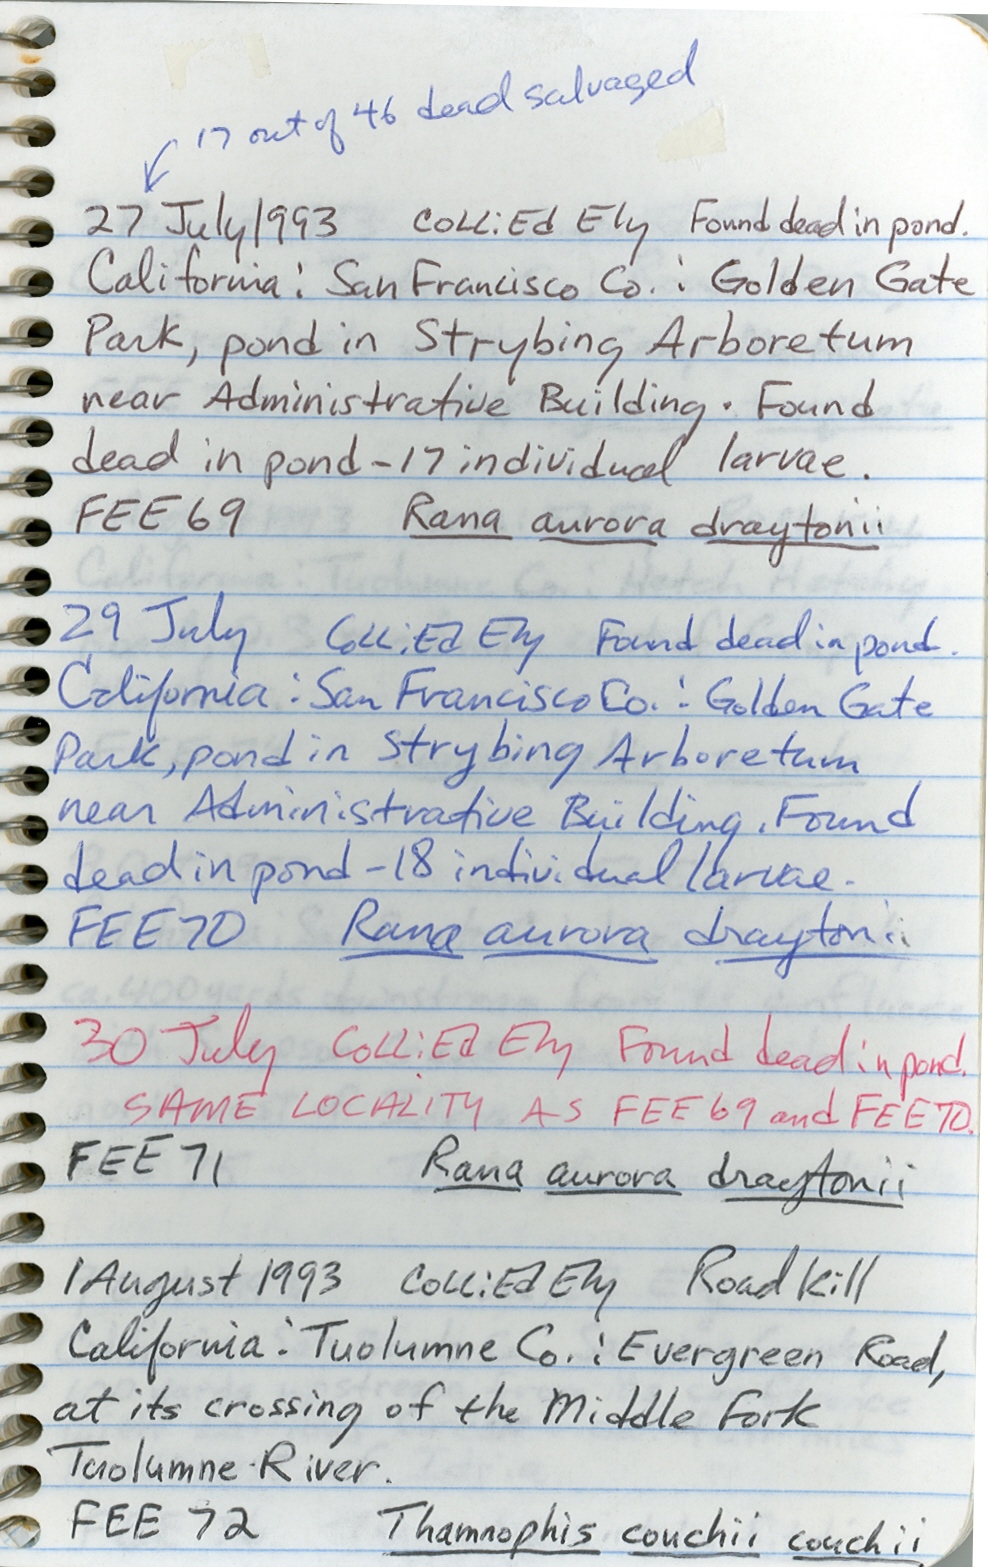 17 out of 46 dead salvaged
27 July 1993 COLL:Ed Ely Found dead in pond.
California: San Francisco Co.: Golden Gate
Park, pond in Strybing Arboretum
near Administrative Building. Found
dead in pond-17 individual larvae.
FEE 69 Rana aurora draytonii
29 July COLL:Ed Ely Found dead in pond.
California: San Francisco Co.: Golden Gate
Park, pond in Strybing Arboretum
near Administrative Building. Found
dead in pond-18 individual larvae.
FEE 70 Rana aurora draytonii
30 July COLL:Ed Ely Found dead in pond.
SAME LOCALITY AS FEE 69 and FEE 70.
FEE 71 Rana aurora draytonii
1 August 1993 COLL:Ed Ely Road kill
California: Tuolumne Co.: Evergreen Road,
at its crossing of the Middle Fork
Tuolumne River.
FEE 72 Thamnophis couchii couchii